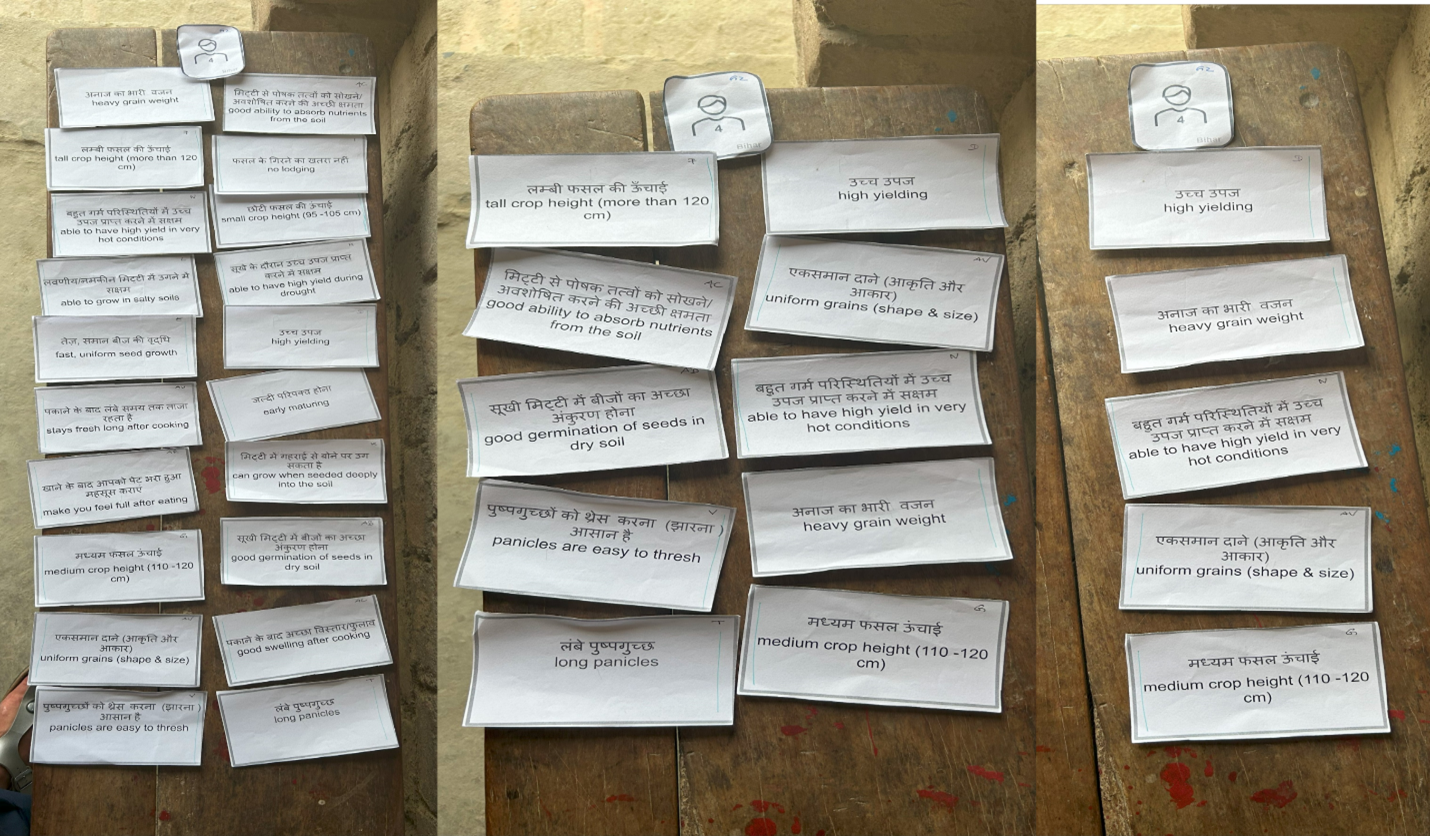 4
अनाज का भारी वजन
heavy grain weight
लम्बी फसल की ऊँचाई
tall crop height (more than 120
cm)
बहुत गर्म परिस्थितियों में उच्च
उपज प्राप्त करने में सक्षम
able to have high yield in very
hot conditions
लवणीय/नमकीन मिट्टी में उगने में
सक्षम
able to grow in salty soils
तेज़, समान बीज की वृद्धि
fast, uniform seed growth
पकाने के बाद लंबे समय तक ताजा
रहता है
stays fresh long after cooking
खाने के बाद आपको पेट भरा हुआ
महसूस कराएं
make you feel full after eating
G
मध्यम फसल ऊंचाई
medium crop height (110 -120
cm)
एकसमान दाने (आकृति और
आकार)
uniform grains (shape & size)
V
पुष्पगुच्छों को थ्रेस करना (झारना )
आसान है
panicles are easy to thresh
AC
मिट्टी से पोषक तत्वों को सोखने/
अवशोषित करने की अच्छी क्षमता
good ability to absorb nutrients
from the soil
फसल के गिरने का खतरा नही
no lodging
छोटी फसल की ऊंचाई
small crop height (95 -105 cm)
सूखे के दौरान उच्च उपज प्राप्त
करने में सक्षम
able to have high yield during
drought
उच्च उपज
high yielding
जल्दी परिपक्व होना
early maturing
मिट्टी में गहराई से बोने पर उग
सकता है
can grow when seeded deeply
into the soil
सूखी मिट्टी में बीजों का अच्छा
अंकुरण होना
good germination of seeds in
dry soil
पकाने के बाद अच्छा विस्तार/फुलाव
good swelling after cooking
लंबे पुष्पगुच्छ
long panicles
A2
4
Bihar
F
लम्बी फसल की ऊँचाई
tall crop height (more than 120
cm)
AC
मिट्टी से पोषक तत्वों को सोखने/
अवशोषित करने की अच्छी क्षमता
good ability to absorb nutrients
from the soil
सूखी मिट्टी में बीजों का अच्छा
अंकुरण होना
good germination of seeds in
dry soil
V
पुष्पगुच्छों को थ्रेस करना (झारना )
आसान है
panicles are easy to thresh
T
लंबे पुष्पगुच्छ
long panicles
उच्च उपज
high yielding
एकसमान दाने (आकृति और
आकार)
uniform grains (shape & size)
N
बहुत गर्म परिस्थितियों में उच्च
उपज प्राप्त करने में सक्षम
able to have high yield in very
hot conditions
अनाज का भारी वजन
heavy grain weight
G
मध्यम फसल ऊंचाई
medium crop height (110 -120
cm)
A2
4
Bihar
उच्च उपज
high yielding
अनाज का भारी वजन
heavy grain weight
N
बहुत गर्म परिस्थितियों में उच्च
उपज प्राप्त करने में सक्षम
able to have high yield in very
hot conditions
एकसमान दाने (आकृति और
आकार)
uniform grains (shape & size)
G
मध्यम फसल ऊंचाई
medium crop height (110 -120
cm)